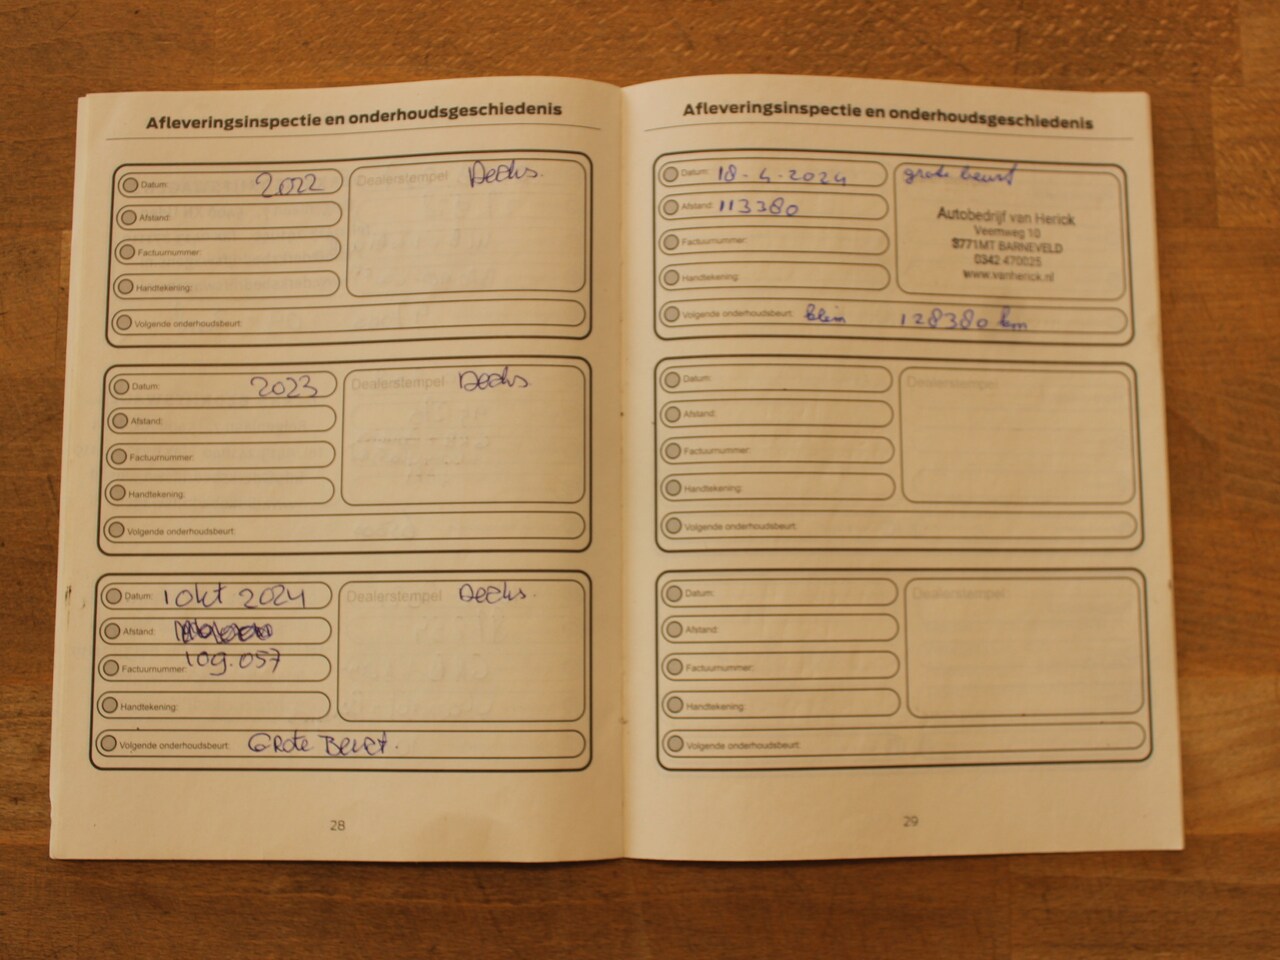 Afleveringsinspectie en onderhoudsgeschiedenis
Datum: 2022
Dealerstempel
Afstand:
Factuurnummer:
Handtekening:
Volgende onderhoudsbeurt:
Datum: 2023
Dealerstempel
Afstand:
Factuurnummer:
Handtekening:
Volgende onderhoudsbeurt:
Datum: 1 okt 2024
Dealerstempel
Afstand:
109.057
Factuurnummer:
Handtekening:
Volgende onderhoudsbeurt: GROTE BEURT.
28
Afleveringsinspectie en onderhoudsgeschiedenis
Datum: 18-4-2024
grote beurt
Afstand: 113380
Autobedrijf van Herick
Veemweg 10
3771MT BARNEVELD
0342 470025
www.vanherick.nl
Factuurnummer:
Handtekening:
Volgende onderhoudsbeurt: klein 128380 km
Datum:
Dealerstempel
Afstand:
Factuurnummer:
Handtekening:
Volgende onderhoudsbeurt:
Datum:
Dealerstempel
Afstand:
Factuurnummer:
Handtekening:
Volgende onderhoudsbeurt:
29